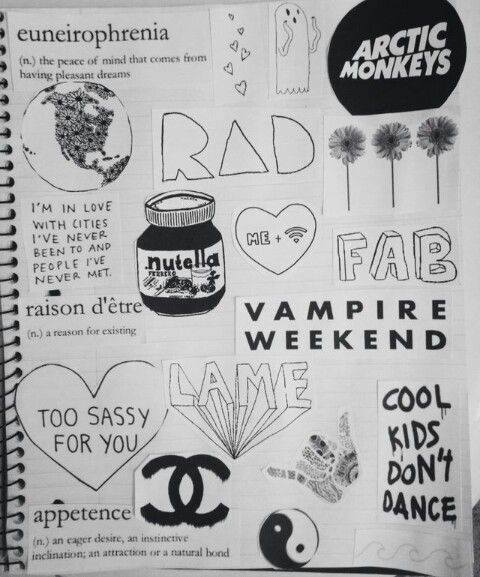 euneirophrenia
(n.) the peace of mind that comes from
having pleasant dreams
ARCTIC
MONKEYS
RAD
I'M IN LOVE
WITH CITIES
I'VE NEVER
BEEN TO AND
PEOPLE I'VE
NEVER MET.
nutella
FERRERO
ME +
FAB
raison d'être
(n.) a reason for existing
VAMPIRE
WEEKEND
LAME
TOO SASSY
FOR YOU
COOL
KIDS
DON'T
DANCE
appetence
(n.) an eager desire, an instinctive
inclination; an attraction or a natural bond